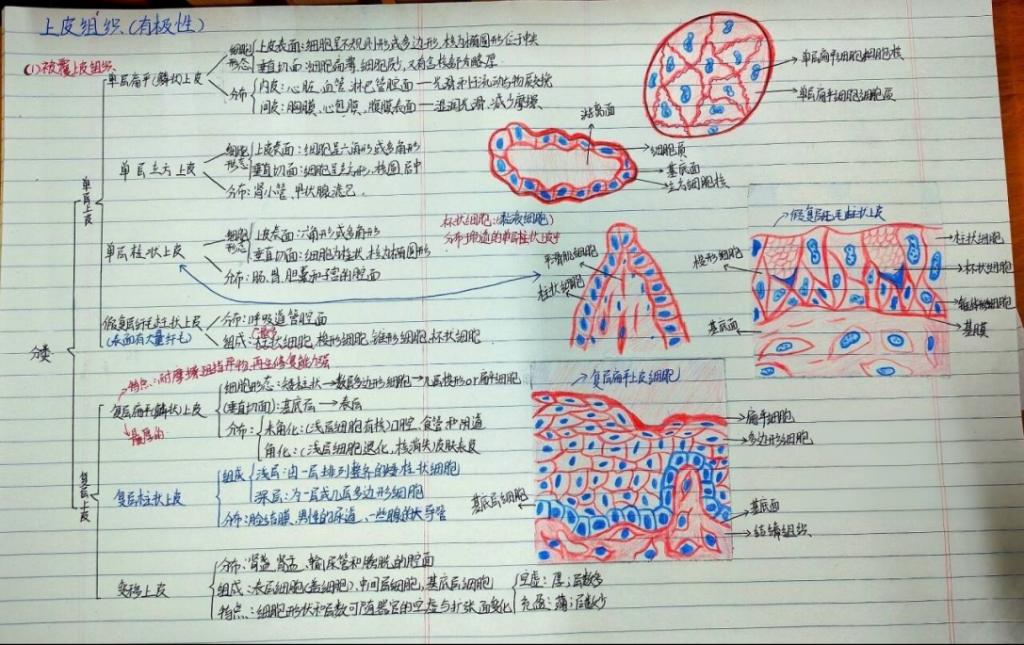 上皮组织(有极性)
(1)被覆上皮组织
分类
单层上皮
单层扁平(鳞状)上皮
细胞形态
上皮表面:细胞呈不规则形或多边形,核为椭圆形位于中央
垂直切面:细胞扁薄,细胞质少,只有含核部分略厚
分布
内皮:心脏、血管、淋巴管腔面—光滑利于流动与物质交换
间皮:胸膜、心包膜、腹膜表面—湿润光滑,减少摩擦
单层立方上皮
细胞形态
上皮表面:细胞呈六角形或多角形
垂直切面:细胞呈立方形,核圆居中
分布:肾小管、甲状腺滤泡
单层柱状上皮
细胞形态
上皮表面:六角形或多角形
垂直切面:细胞为柱状,核为椭圆形
分布:肠、胃、胆囊和子宫的腔面
假复层纤毛柱状上皮
(表面有大量纤毛)
分布:呼吸道管腔面
组成:柱状细胞、梭形细胞、锥形细胞、杯状细胞
复层上皮
特点:耐摩擦阻挡异物,再生修复能力强
复层扁平(鳞状)上皮
最厚的
细胞形态:矮柱状→数层多边形细胞→几层梭形or扁平细胞
(垂直切面):基底层→表层
分布:
未角化:(浅层细胞有核)口腔、食管和阴道
角化:(浅层细胞退化,核消失)皮肤表皮
复层柱状上皮
组成
浅层:由一层排列整齐的矮柱状细胞
深层:为一层或几层多边形细胞
分布:睑结膜、男性的尿道、一些腺的大导管
变移上皮
分布:肾盏、肾盂、输尿管和膀胱的腔面
组成:表层细胞(盖细胞)、中间层细胞、基底层细胞
特点:细胞形状和层数可随器官的空虚与扩张而变化
空虚:厚;层数多
充盈:薄;层数少
单层扁平细胞细胞核
单层扁平细胞细胞质
游离面
细胞质
基底面
立方细胞核
杯状细胞:(粘液细胞)
分布于肠道的单层柱状上皮中
平滑肌细胞
柱状细胞
假复层纤毛柱状上皮
梭形细胞
基底面
柱状细胞
杯状细胞
锥体形细胞
基膜
复层扁平上皮细胞
扁平细胞
多边形细胞
基底层细胞
基底面
结缔组织